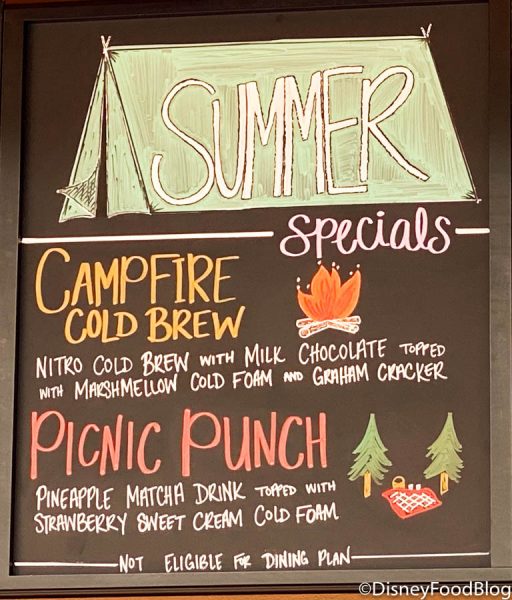 SUMMER
Specials
CAMPFIRE
COLD BREW
NITRO COLD BREW WITH MILK CHOCOLATE TOPPED
WITH MARSHMELLOW COLD FOAM AND GRAHAM CRACKER
PICNIC PUNCH
PINEAPPLE MATCHA DRINK TOPPED WITH
STRAWBERRY SWEET CREAM COLD FOAM
NOT ELIGIBLE FOR DINING PLAN
©DisneyFoodBlog